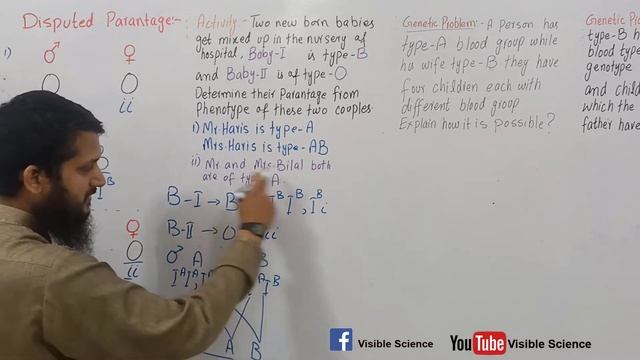 Disputed Parantage:-
i)
♂ ♀
ii
I B
♀
ii
Activity - Two new born babies
get mixed up in the nursery of
hospital, Baby-I is type-B
and Baby-II is of type-O
Determine their Parantage from
Phenotype of these two couples.
i) Mr. Haris is type-A
Mrs. Haris is type-AB
ii) Mr. and Mrs. Bilal both
are of type A.
B-I → B I^B I^B, I^B i
B-II → O ii
♂ A B
I^A I^A, I^A I^B
A B
Genetic Problem:- A Person has
type-A blood group while
his wife type-B they have
four children each with
different blood group
Explain how it is possible?
Genetic Pro
type-B h
blood type
genotype
and child
which the
father have
f Visible Science
YouTube Visible Science